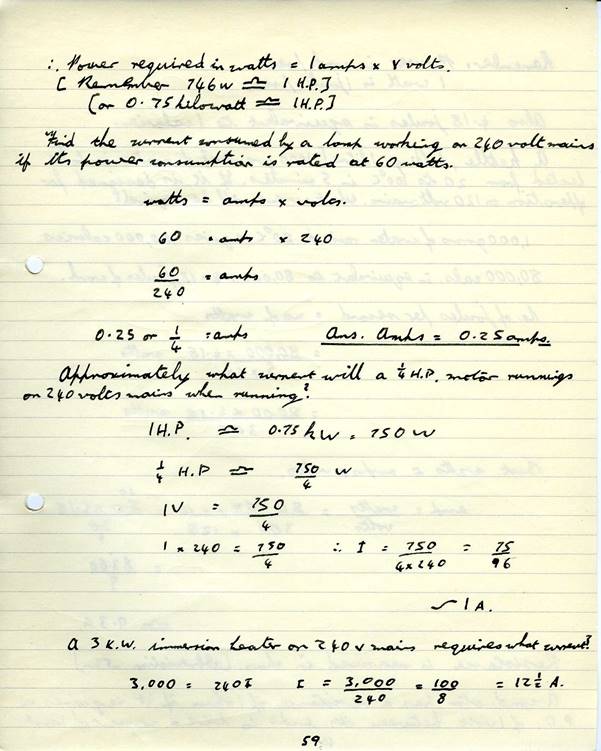 ∴ Power required in watts = I amps × V volts.
[ Remember 746 w ≏ 1 H.P.]
[or 0.75 kilowatt ≏ 1H.P.]
Find the current consumed by a lamp working on 240 volt mains
if its power consumption is rated at 60 watts.
watts = amps × volts.
60 = amps × 240
60/240 = amps
0.25 or 1/4 = amps Ans. Amps = 0.25 amps.
Approximately what current will a 1/4 H.P. motor runnings
on 240 volts mains when running?
1H.P. ≏ 0.75 kW = 750 W
1/4 H.P ≏ 750/4 W
IV = 750/4
I × 240 = 750/4 ∴ I = 750/4×240 = 75/96
~ 1 A.
A 3 K.W. immersion heater on 240 v mains requires what current?
3,000 = 240I I = 3,000/240 = 100/8 = 12 1/2 A.
59